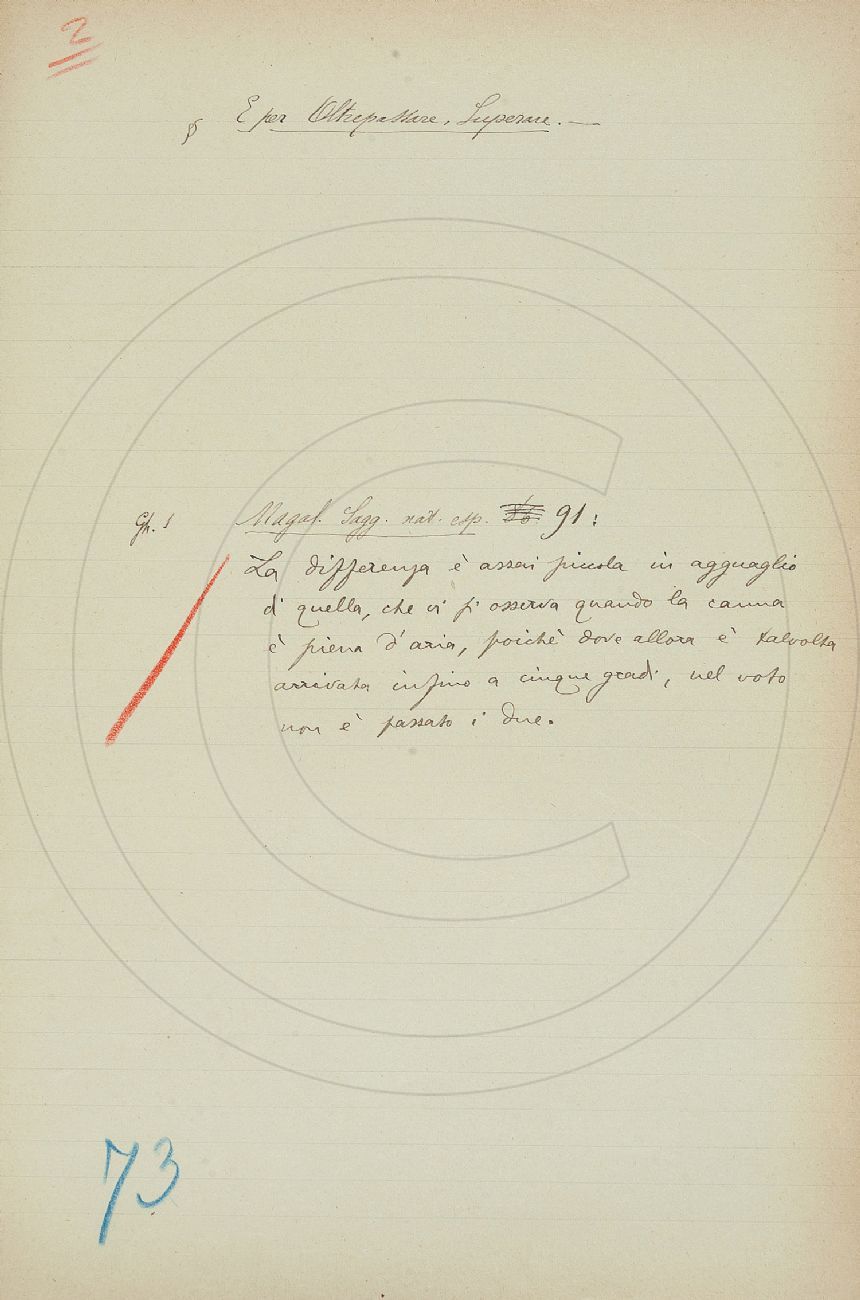 2
§ E per Oltrepassare, Superare. —
Gh. 1 Magal. Sagg. nat. esp. 91:
La differenza è assai piccola in agguaglio
di quella, che vi si osserva quando la canna
è piena d'aria, poichè dove allora è talvolta
arrivata infino a cinque gradi, nel voto
non è passato i due.
73